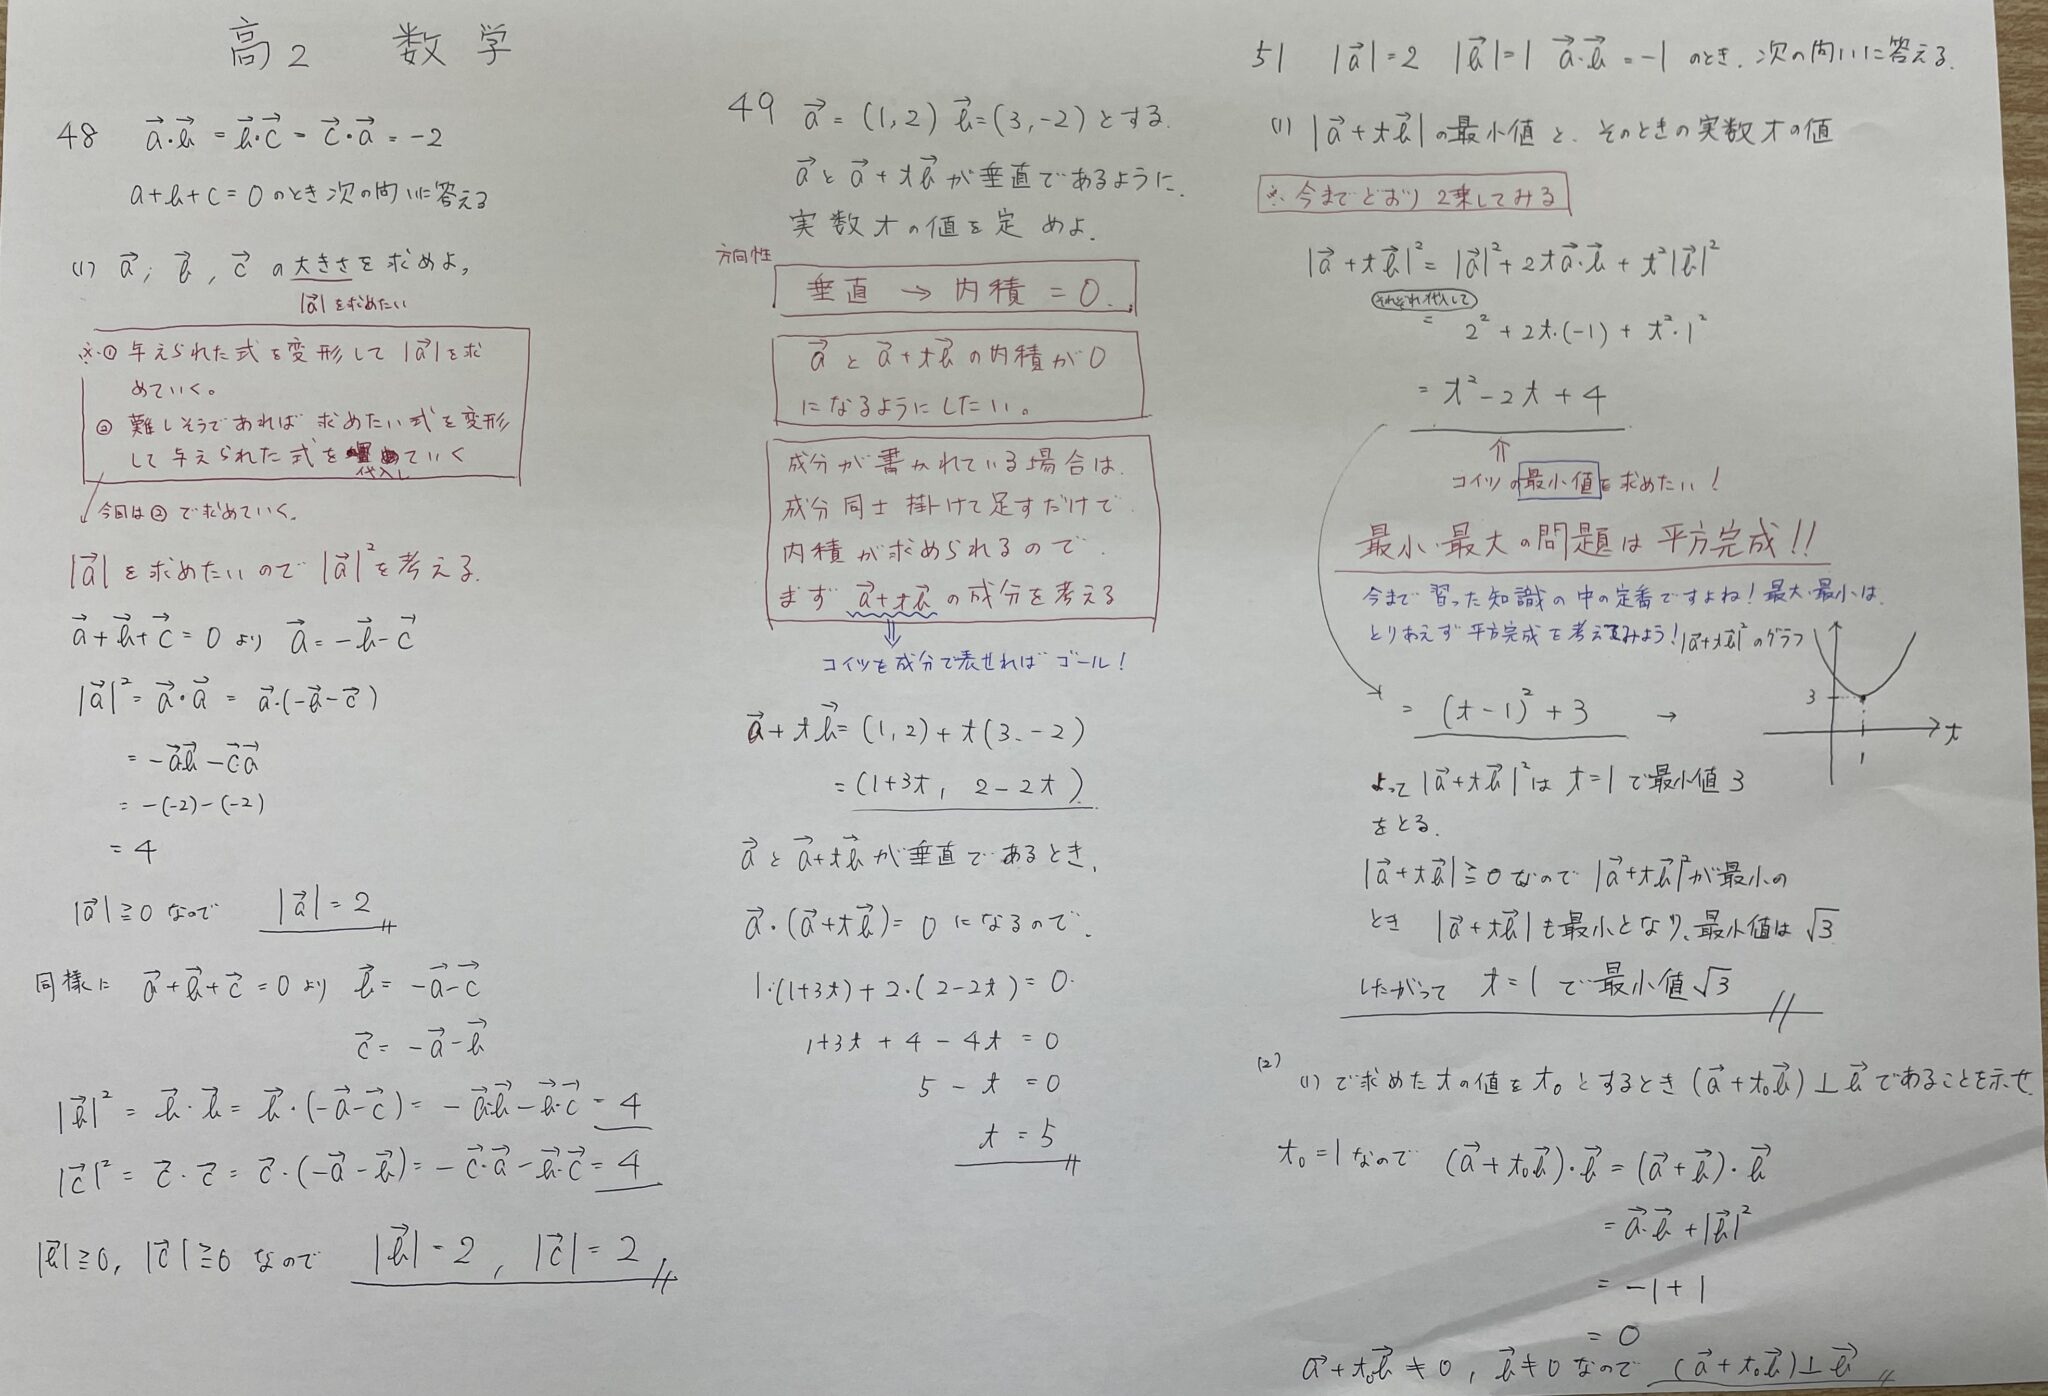 高2 数学
48 a⃗・b⃗ = b⃗・c⃗ = c⃗・a⃗ = -2
a+b+c=0 のとき次の問いに答える
(1) a⃗, b⃗, c⃗ の大きさを求めよ。
|a⃗|を求めたい
※① 与えられた式を変形して |a⃗|を求
めていく。
② 難しそうであれば 求めたい式を変形
して与えられた式を ていく
代入し
今回は②で求めていく。
|a⃗|を求めたいので |a⃗|²を考える.
a⃗+b⃗+c⃗=0 より a⃗=-b⃗-c⃗
|a⃗|²=a⃗・a⃗ = a⃗・(-b⃗-c⃗)
= -a⃗・b⃗-c⃗・a⃗
= -(-2)-(-2)
= 4
|a⃗|≧0 なので |a⃗|=2
同様に a⃗+b⃗+c⃗=0より b⃗=-a⃗-c⃗
c⃗=-a⃗-b⃗
|b⃗|²=b⃗・b⃗=b⃗・(-a⃗-c⃗)=-a⃗・b⃗-b⃗・c⃗=4
|c⃗|²=c⃗・c⃗=c⃗・(-a⃗-b⃗)=-c⃗・a⃗-b⃗・c⃗=4
|b⃗|≧0, |c⃗|≧0 なので |b⃗|=2, |c⃗|=2
49 a⃗=(1,2) b⃗=(3,-2)とする.
a⃗とa⃗+tb⃗が垂直であるように.
実数tの値を定めよ.
方向性
垂直 → 内積 = 0.
a⃗とa⃗+tb⃗の内積が0
になるようにしたい。
成分が書かれている場合は.
成分同士掛けて足すだけで
内積が求められるので.
まず a⃗+tb⃗の成分を考える
コイツを成分で表せれば ゴール!
a⃗+tb⃗=(1,2)+t(3,-2)
=(1+3t, 2-2t)
a⃗とa⃗+tb⃗が垂直であるとき.
a⃗・(a⃗+tb⃗)=0になるので.
1・(1+3t)+2・(2-2t)=0
1+3t+4-4t=0
5-t=0
t=5
51 |a⃗|=2 |b⃗|=1 a⃗・b⃗=-1 のとき. 次の問いに答える.
(1) |a⃗+tb⃗|の最小値と、そのときの実数tの値
※ 今までどおり 2乗してみる
|a⃗+tb⃗|²=|a⃗|²+2ta⃗・b⃗+t²|b⃗|²
それぞれ代入して
= 2²+2t・(-1)+t²・1²
= t²-2t+4
⇑
コイツの最小値を求めたい!
最小・最大の問題は平方完成!!
今まで習った知識の中の定番ですよね! 最大・最小は.
とりあえず平方完成を考えてみよう! |a⃗+tb⃗|²のグラフ
= (t-1)²+3 →
3
t
1
よって |a⃗+tb⃗|²は t=1で最小値3
をとる.
|a⃗+tb⃗|≧0なので |a⃗+tb⃗|²が最小の
とき |a⃗+tb⃗|も最小となり、最小値は √3
したがって t=1で最小値√3
(2) (1)で求めたtの値をt₀とするとき(a⃗+t₀b⃗)⊥b⃗であることを示せ
t₀=1なので (a⃗+t₀b⃗)・b⃗=(a⃗+b⃗)・b⃗
=a⃗・b⃗+|b⃗|²
= -1+1
= 0
a⃗+t₀b⃗≠0, b⃗≠0なので (a⃗+t₀b⃗)⊥b⃗